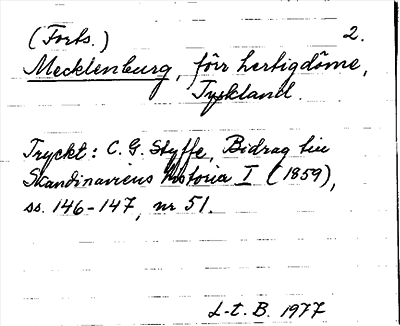 (Forts.) 2.
Mecklenburg, förr hertigdöme,
Tyskland.
Tryckt: C. G. Styffe, Bidrag till
Skandinaviens historia I (1859),
ss. 146-147, nr 51.
L-t. B. 1977